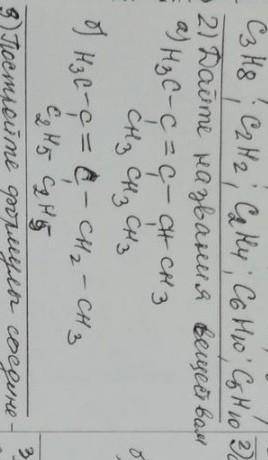 C3H8; C2H2; C2H4; C6H10; C5H10
2) Дайте названия веществам
а) H3C-C=C-CH-CH3
CH3 CH3 CH3
б) H3C-C=C-CH2-CH3
C2H5 C2H5
3) Постройте формулы соедине-
2)